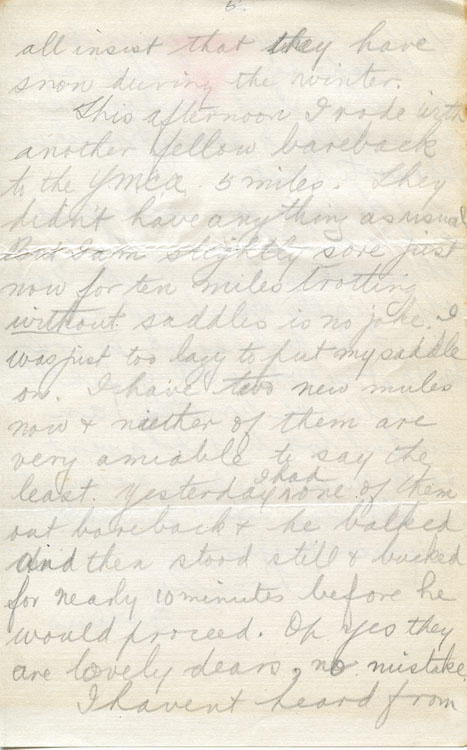 5.
all insist that they have
snow during the winter.
This afternoon I rode with
another fellow bareback
to the YMCA 5 miles. They
didn't have anything as usual
But I am slightly sore just
now for ten miles trotting
without saddles is no joke. I
was just too lazy to put my saddle
on. I have two new mules
now & niether of them are
very amiable to say the
least. Yesterday I had one of them
out bareback & he balked
and then stood still & bucked
for nearly 10 minutes before he
would proceed. Oh yes they
are lovely dears, no mistake.
I havent heard from